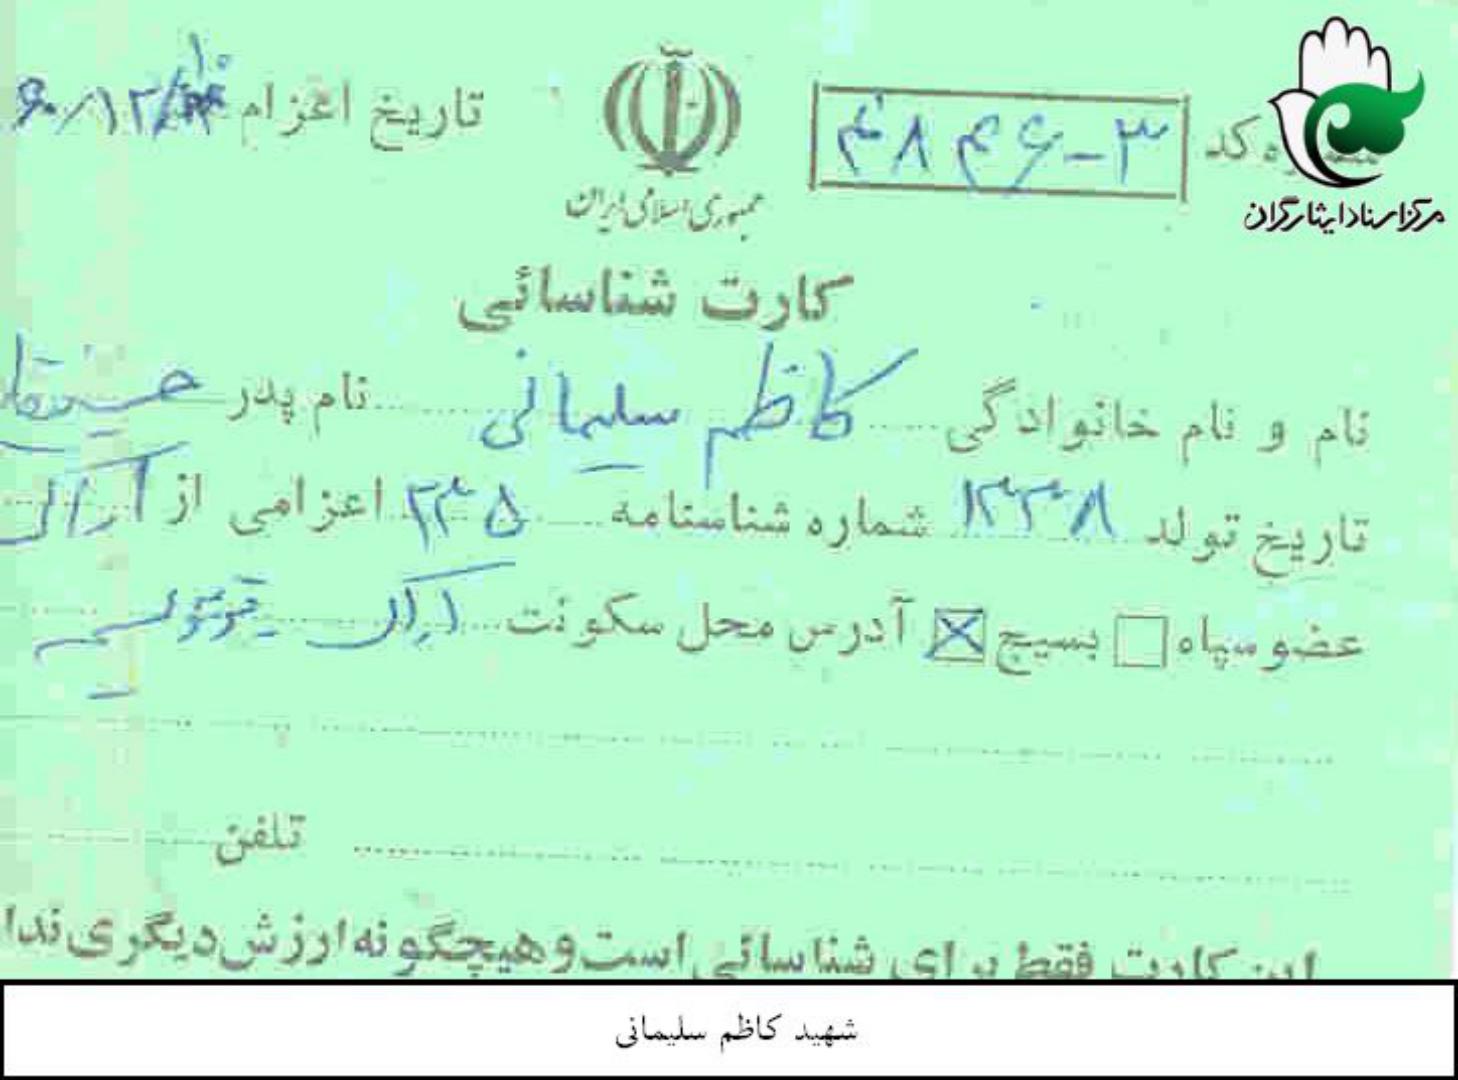 کد ۳-۴۸۴۶
تاریخ اعزام
جمهوری اسلامی ایران
مرکز اسناد ایثارگران
کارت شناسائی
نام و نام خانوادگی کاظم سلیمانی نام پدر
تاریخ تولد ۱۳۳۸ شماره شناسنامه ۲۴۵ اعزامی از اراک
عضو سپاه بسیج آدرس محل سکونت اراک
تلفن
این کارت فقط برای شناسائی است و هیچگونه ارزش دیگری ندا
شهید کاظم سلیمانی